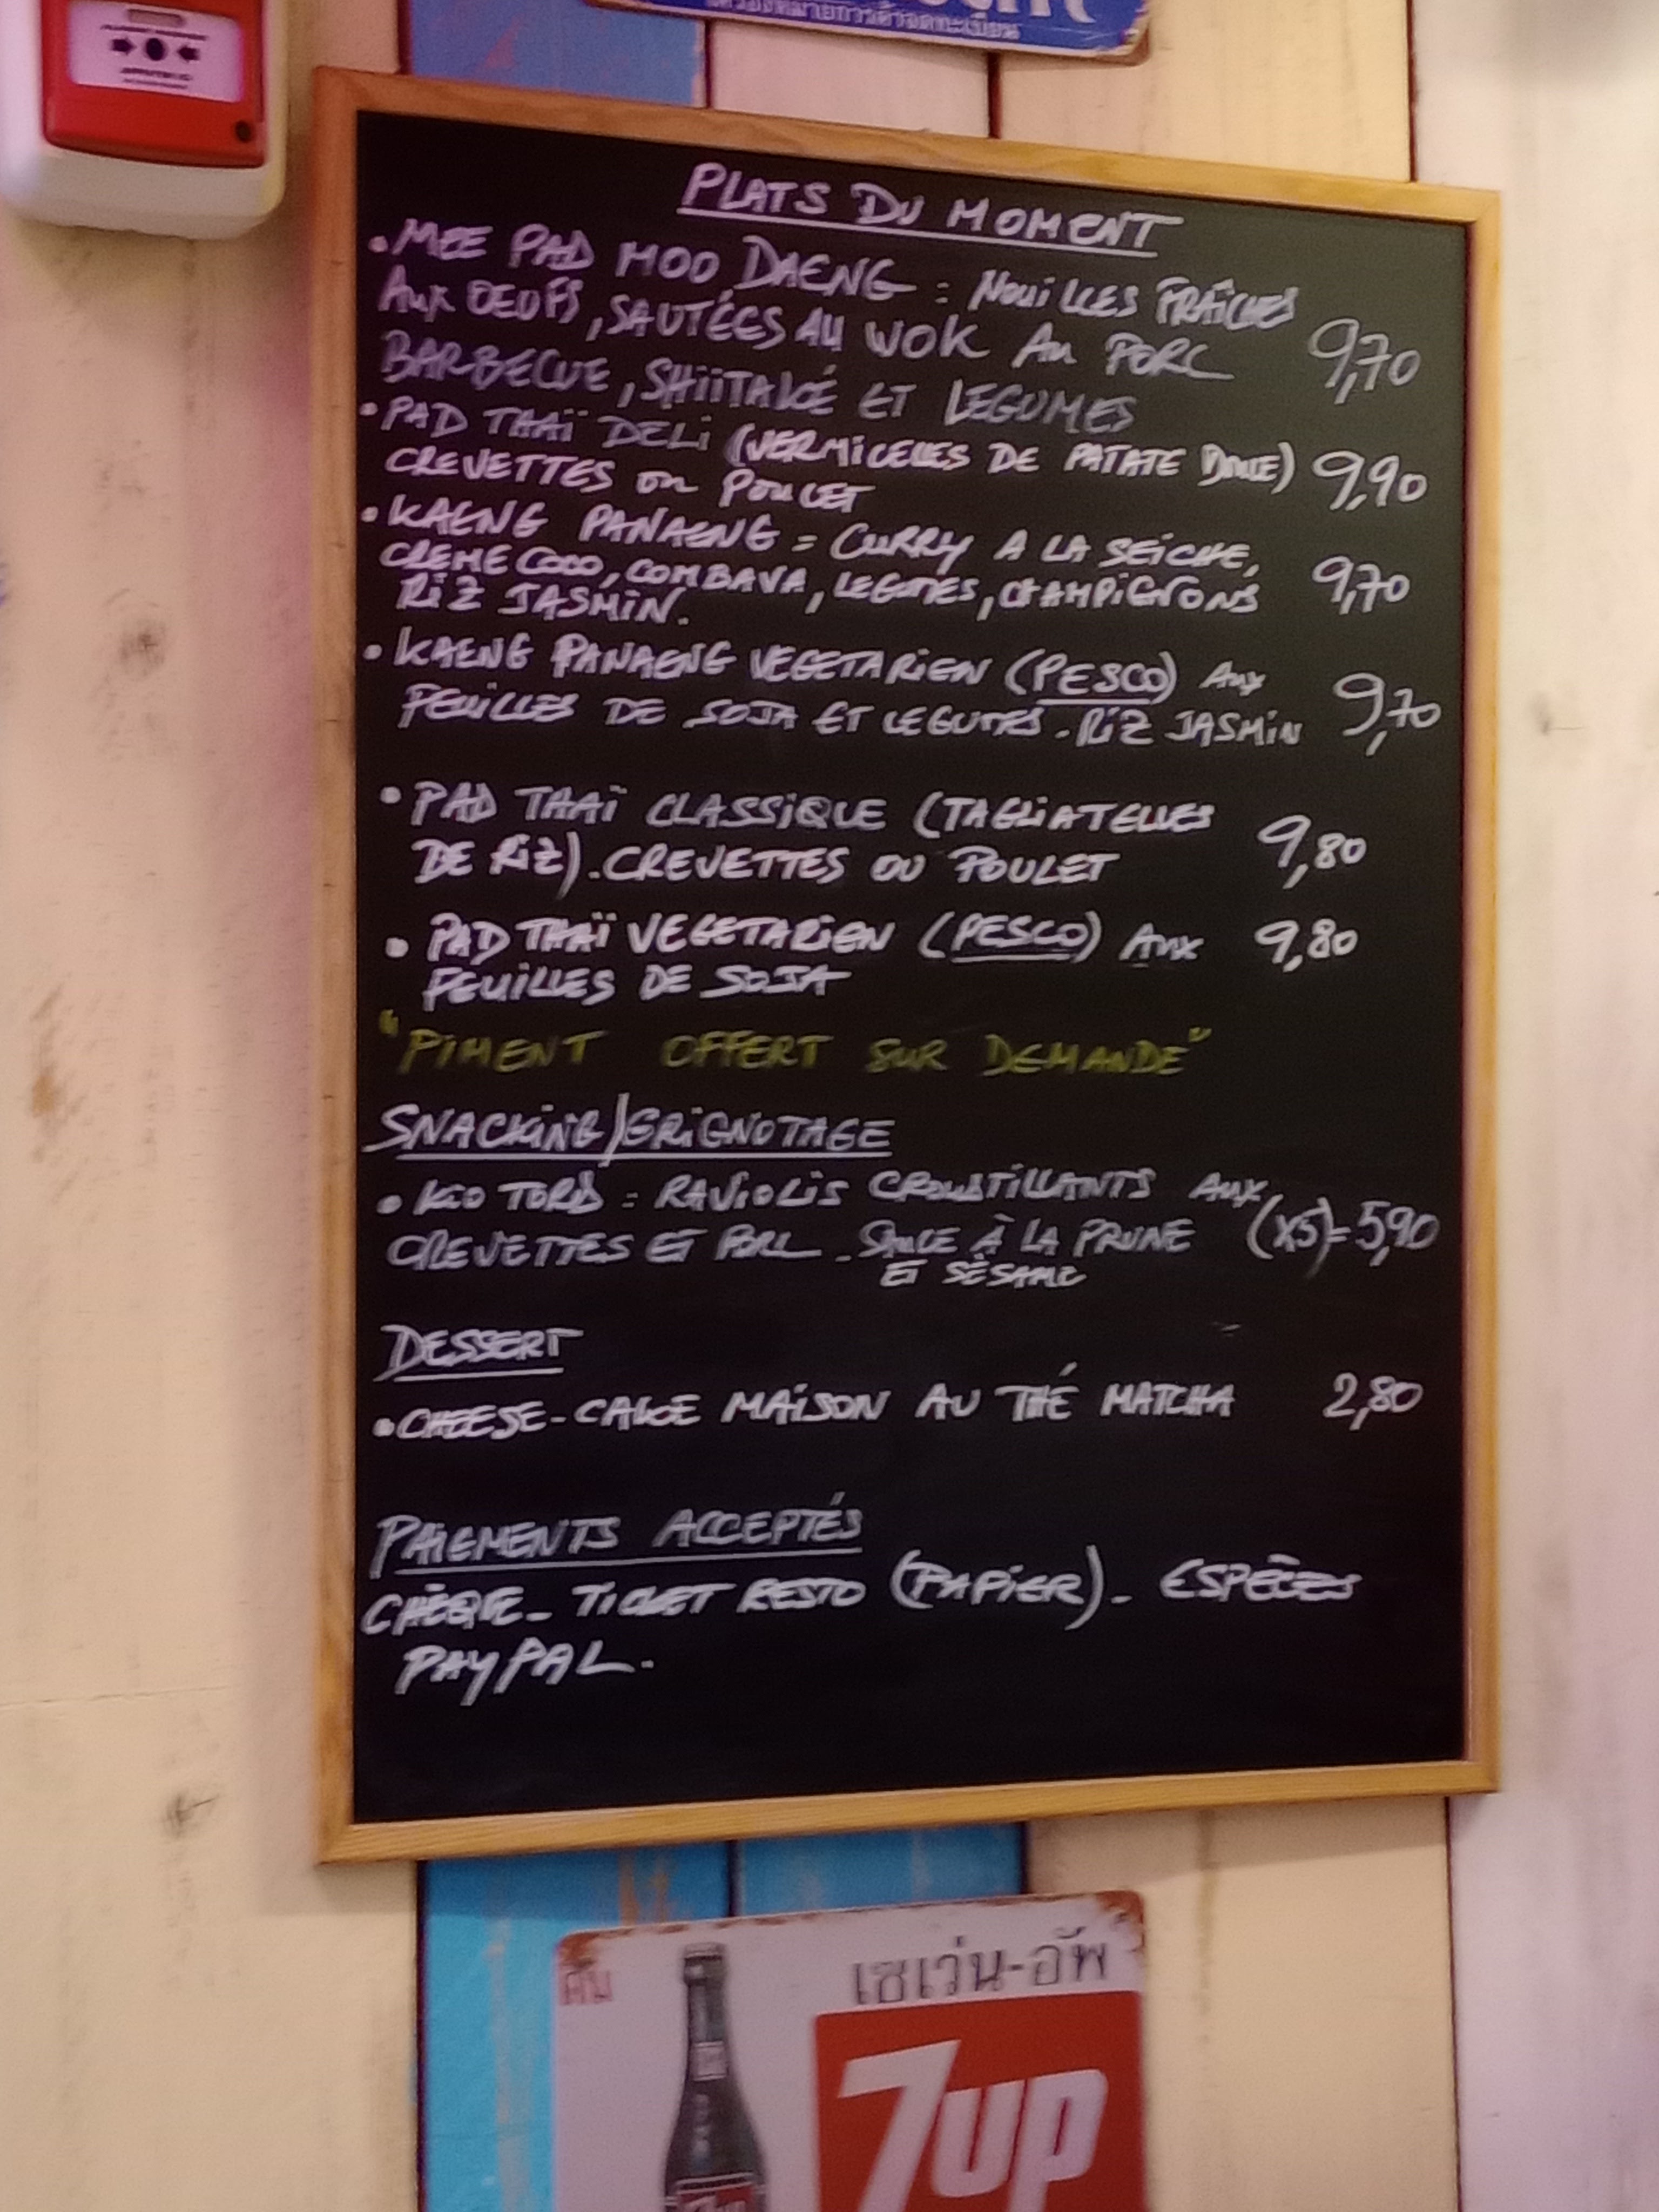 เครื่องหมายการค้าจดทะเบียน
PLATS DU MOMENT
• MEE PAD MOO DAENG = NOUILLES FRAÎCHES
AUX OEUFS, SAUTÉES AU WOK AU PORC 9,70
BARBECUE, SHIITAKÉ ET LEGUMES
• PAD THAÏ DELI (VERMICELLES DE PATATE DOUCE) 9,90
CREVETTES OU POULET
• KAENG PANAENG = CURRY A LA SEICHE,
CREME COCO, COMBAVA, LEGUMES, CHAMPIGNONS 9,70
RIZ JASMIN.
• KAENG PANAENG VEGETARIEN (PESCO) AUX
FEUILLES DE SOJA ET LEGUMES. RIZ JASMIN 9,70
• PAD THAÏ CLASSIQUE (TAGLIATELLES
DE RIZ). CREVETTES OU POULET 9,80
• PAD THAÏ VEGETARIEN (PESCO) AUX 9,80
FEUILLES DE SOJA
"PIMENT OFFERT SUR DEMANDE"
SNACKING/GRIGNOTAGE
• KIO TORD = RAVIOLIS CROUSTILLANTS AUX
CREVETTES ET PORC. SAUCE À LA PRUNE (X5)= 5,90
ET SÉSAME
DESSERT
• CHEESE-CAKE MAISON AU THÉ MATCHA 2,80
PAIEMENTS ACCEPTÉS
CHÈQUE_ TICKET RESTO (PAPIER)_ ESPÈCES
PAYPAL.
ดื่ม เซเว่น-อัพ
7up